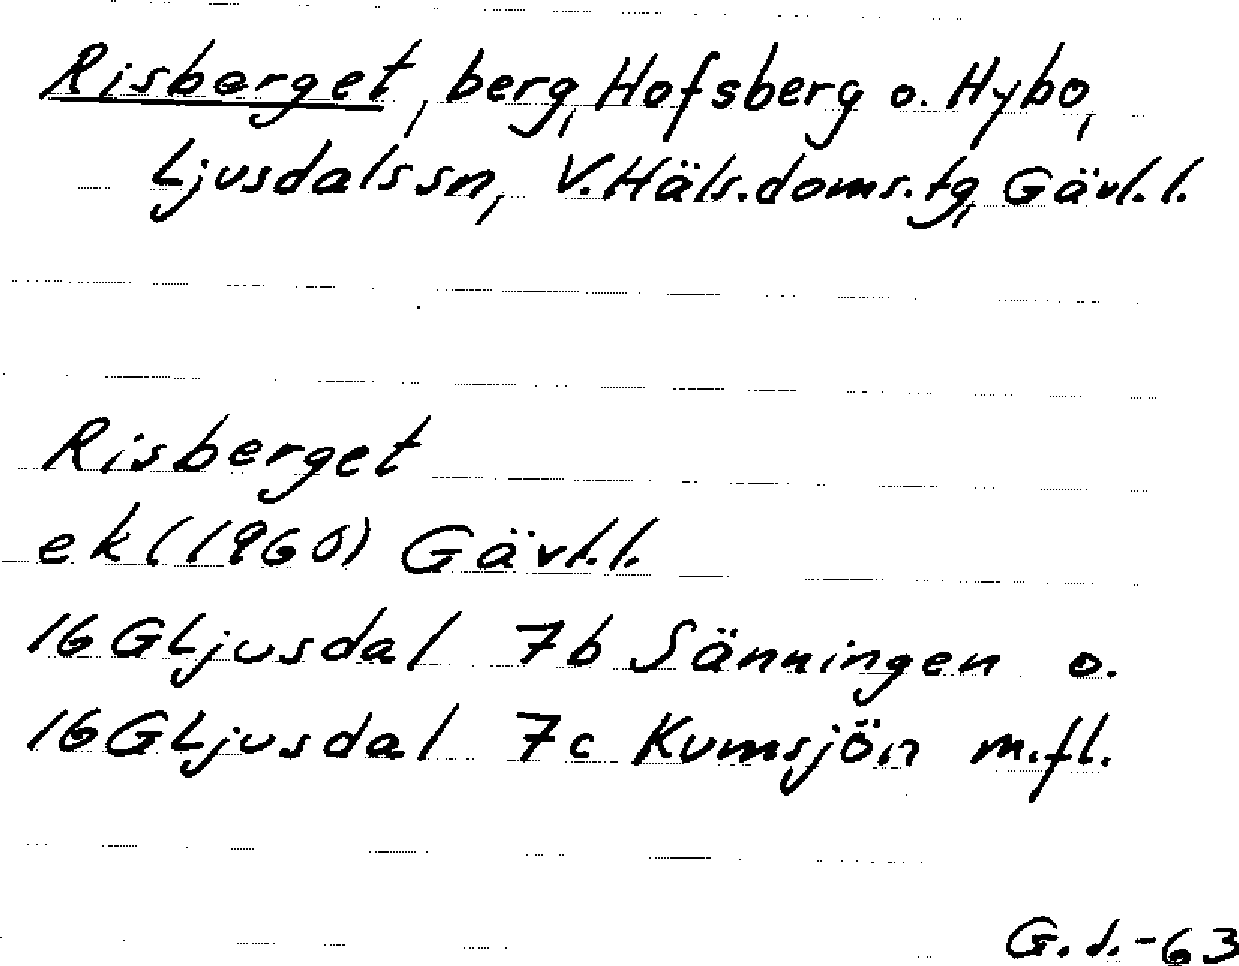 Risberget, berg, Hofsberg o. Hybo,
Ljusdals sn, V. Häls. doms. tg, Gävl. l.
Risberget
ek (1960) Gävl. l.
16G Ljusdal 7b Sänningen o.
16G Ljusdal 7c Kumsjön m.fl.
G. J. -63